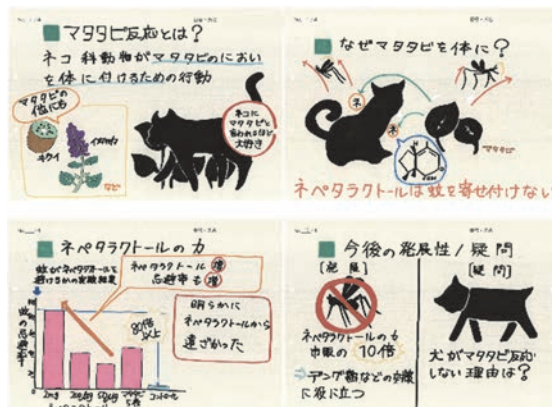 マタタビ反応とは?
ネコ科動物がマタタビのにおい
を体に付けるための行動
マタタビの
他にも
キウイ
など
ネコに
マタタビと
言われるほど
大好き
なぜマタタビを体に?
ネ
ネ
マタタビ
ネペタラクトールは蚊を寄せ付けない
ネペタラクトールの力
蚊がネペタラクトールを
避けるかの実験結果
ネペタラクトール 増
忌避率も 増
80倍
以上
明らかに
ネペタラクトールから
遠ざかった
蚊の忌避率
2mg
マタタビ
コントロール
ネペタラクトール
今後の発展性/疑問
[発展]
[疑問]
ネペタラクトールの力
市販の10倍
⇒デング熱などの対策
に役に立つ
犬がマタタビ反応
しない理由は?